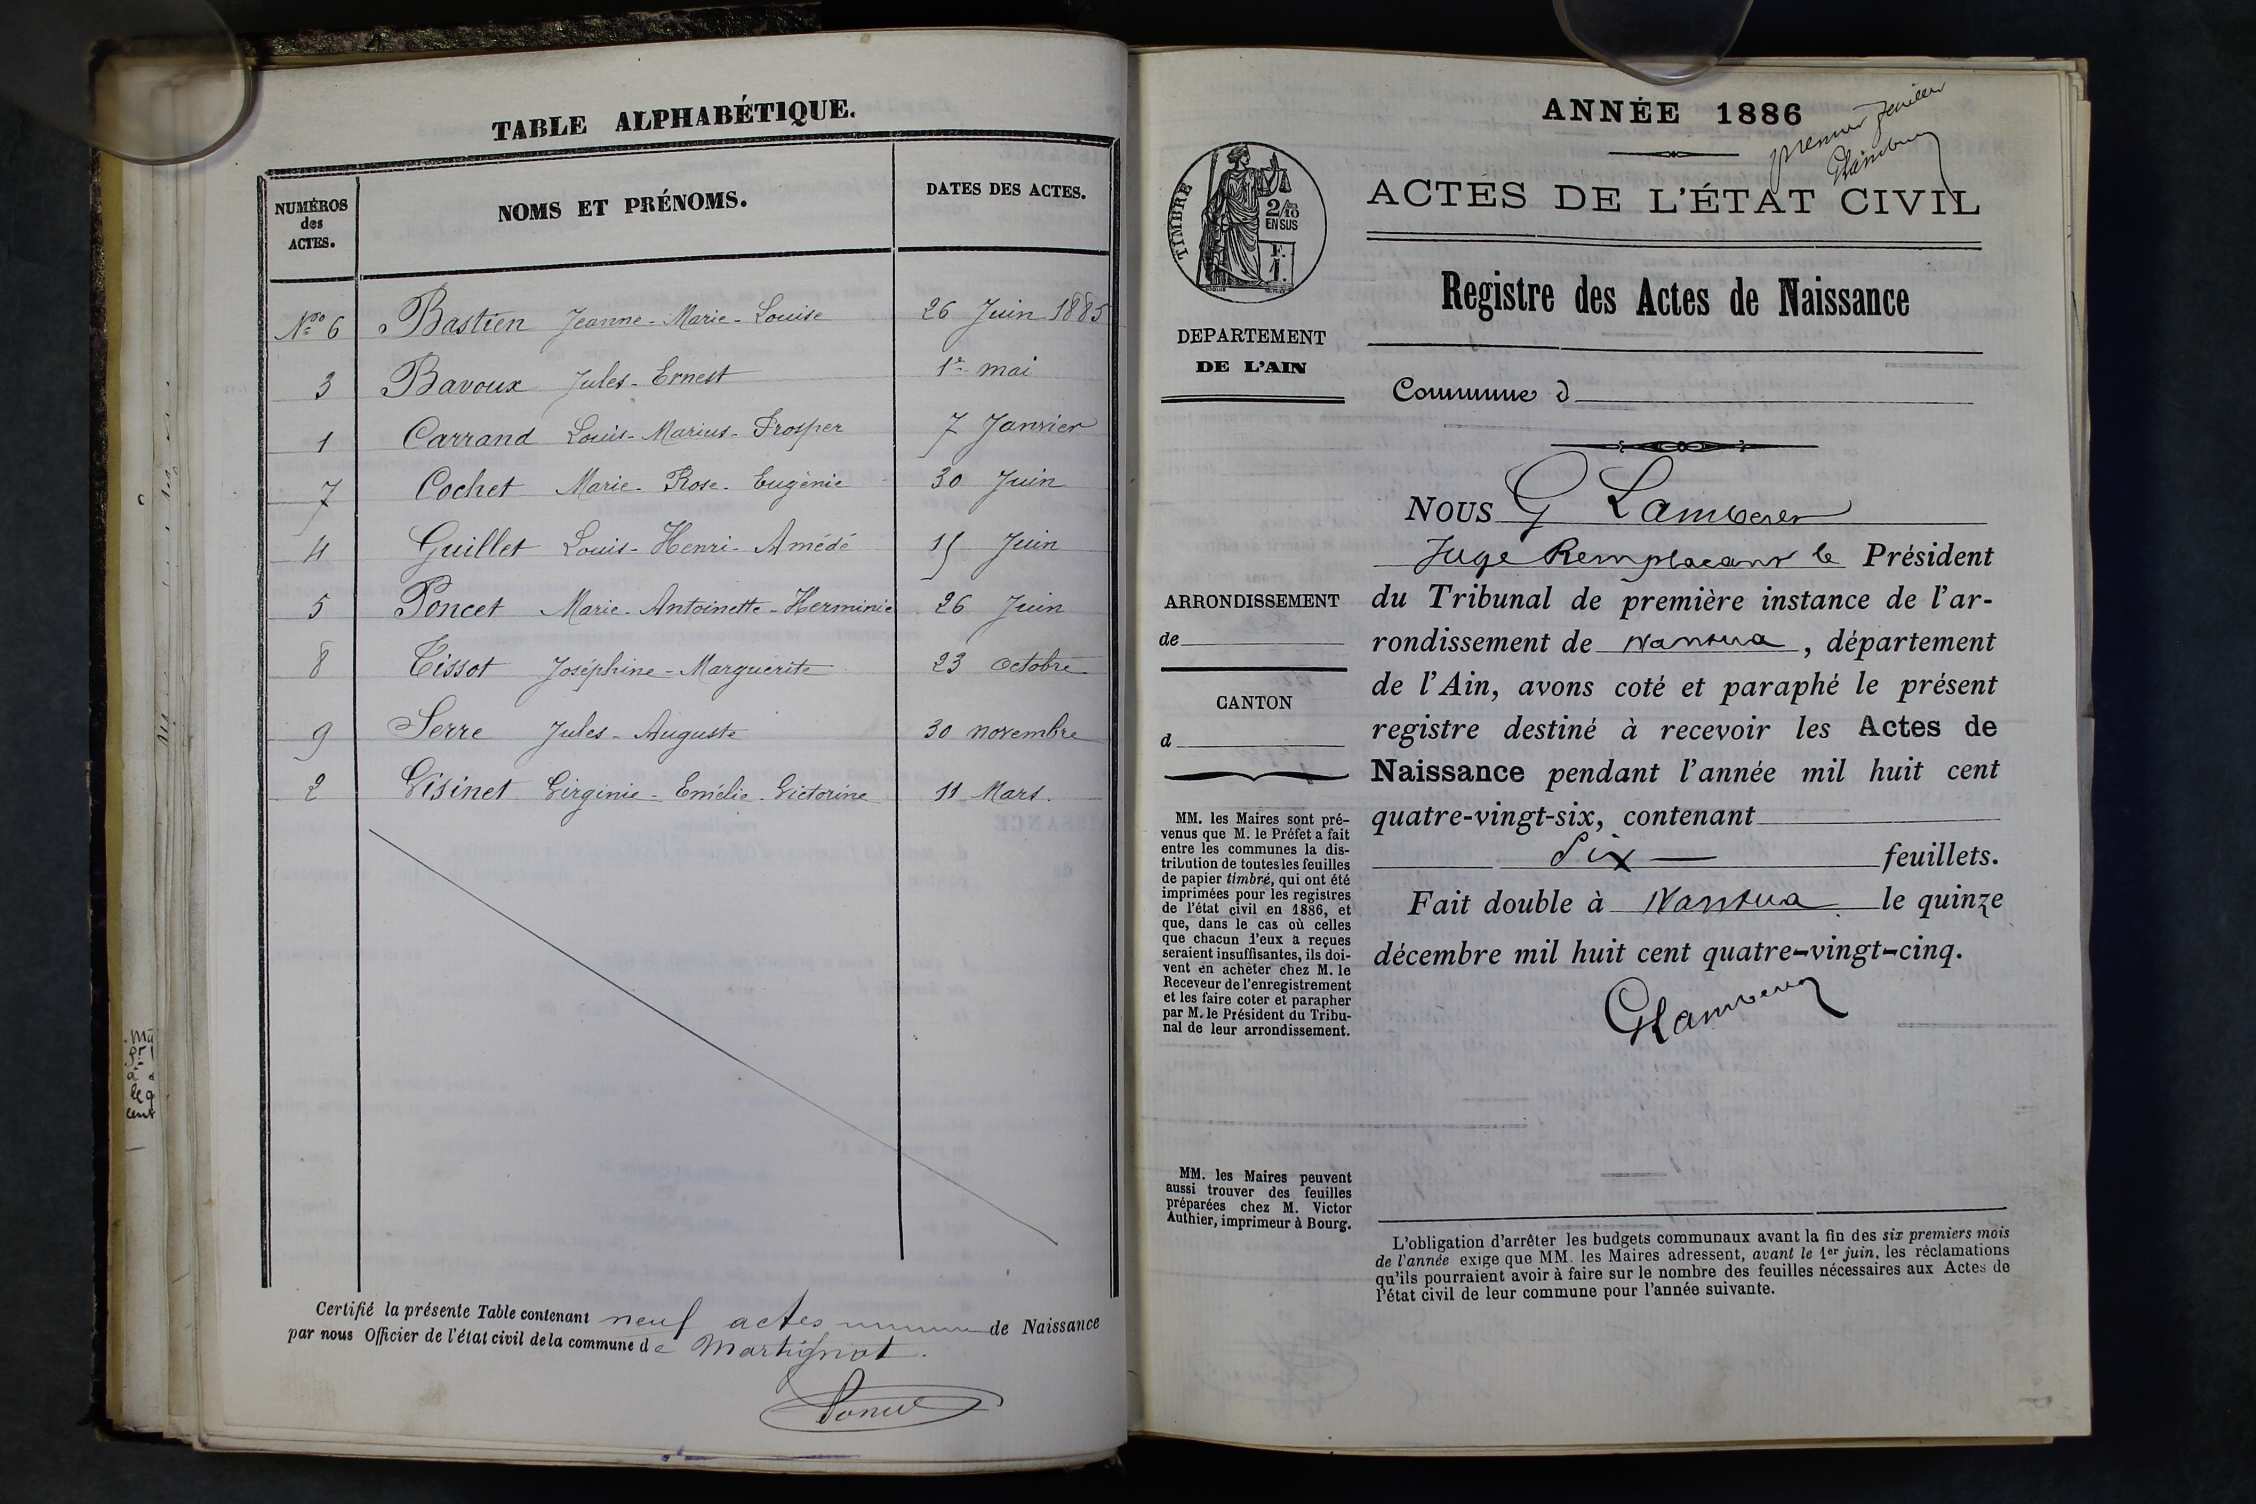 TABLE ALPHABÉTIQUE.
NUMÉROS des ACTES. NOMS ET PRÉNOMS. DATES DES ACTES.
Nos 6 Bastien Jeanne-Marie-Louise 26 Juin 1885
3 Bavoux Jules-Ernest 1er mai
1 Carrand Louis-Marius-Prosper 7 Janvier
7 Cochet Marie-Rose-Eugénie 30 Juin
4 Guillet Louis-Henri-Amédé 15 Juin
5 Poncet Marie-Antoinette-Herminie 26 Juin
8 Tissot Joséphine-Marguerite 23 octobre
9 Serre Jules-Auguste 30 novembre
2 Visinet Virginie-Emélie-Victorine 11 Mars.
Certifié la présente Table contenant neuf actes de Naissance
par nous Officier de l'état civil de la commune de Martignat.
Poncet
ANNÉE 1886
premier feuillet
GLamberer
TIMBRE
2/10 EN SUS
F. 1.
ACTES DE L'ÉTAT CIVIL
Registre des Actes de Naissance
DEPARTEMENT
DE L'AIN
Commune d
NOUS G Lamberer
Juge Remplacant le Président
du Tribunal de première instance de l'ar-
rondissement de Nantua, département
de l'Ain, avons coté et paraphé le présent
registre destiné à recevoir les Actes de
Naissance pendant l'année mil huit cent
quatre-vingt-six, contenant
Six feuillets.
Fait double à Nantua le quinze
décembre mil huit cent quatre-vingt-cinq.
GLamberer
ARRONDISSEMENT
de
CANTON
d
MM. les Maires sont pré-
venus que M. le Préfet a fait
entre les communes la dis-
tribution de toutes les feuilles
de papier timbré, qui ont été
imprimées pour les registres
de l'état civil en 1886, et
que, dans le cas où celles
que chacun d'eux a reçues
seraient insuffisantes, ils doi-
vent en achéter chez M. le
Receveur de l'enregistrement
et les faire coter et parapher
par M. le Président du Tribu-
nal de leur arrondissement.
MM. les Maires peuvent
aussi trouver des feuilles
préparées chez M. Victor
Authier, imprimeur à Bourg.
L'obligation d'arrêter les budgets communaux avant la fin des six premiers mois
de l'année exige que MM. les Maires adressent, avant le 1er juin, les réclamations
qu'ils pourraient avoir à faire sur le nombre des feuilles nécessaires aux Actes de
l'état civil de leur commune pour l'année suivante.